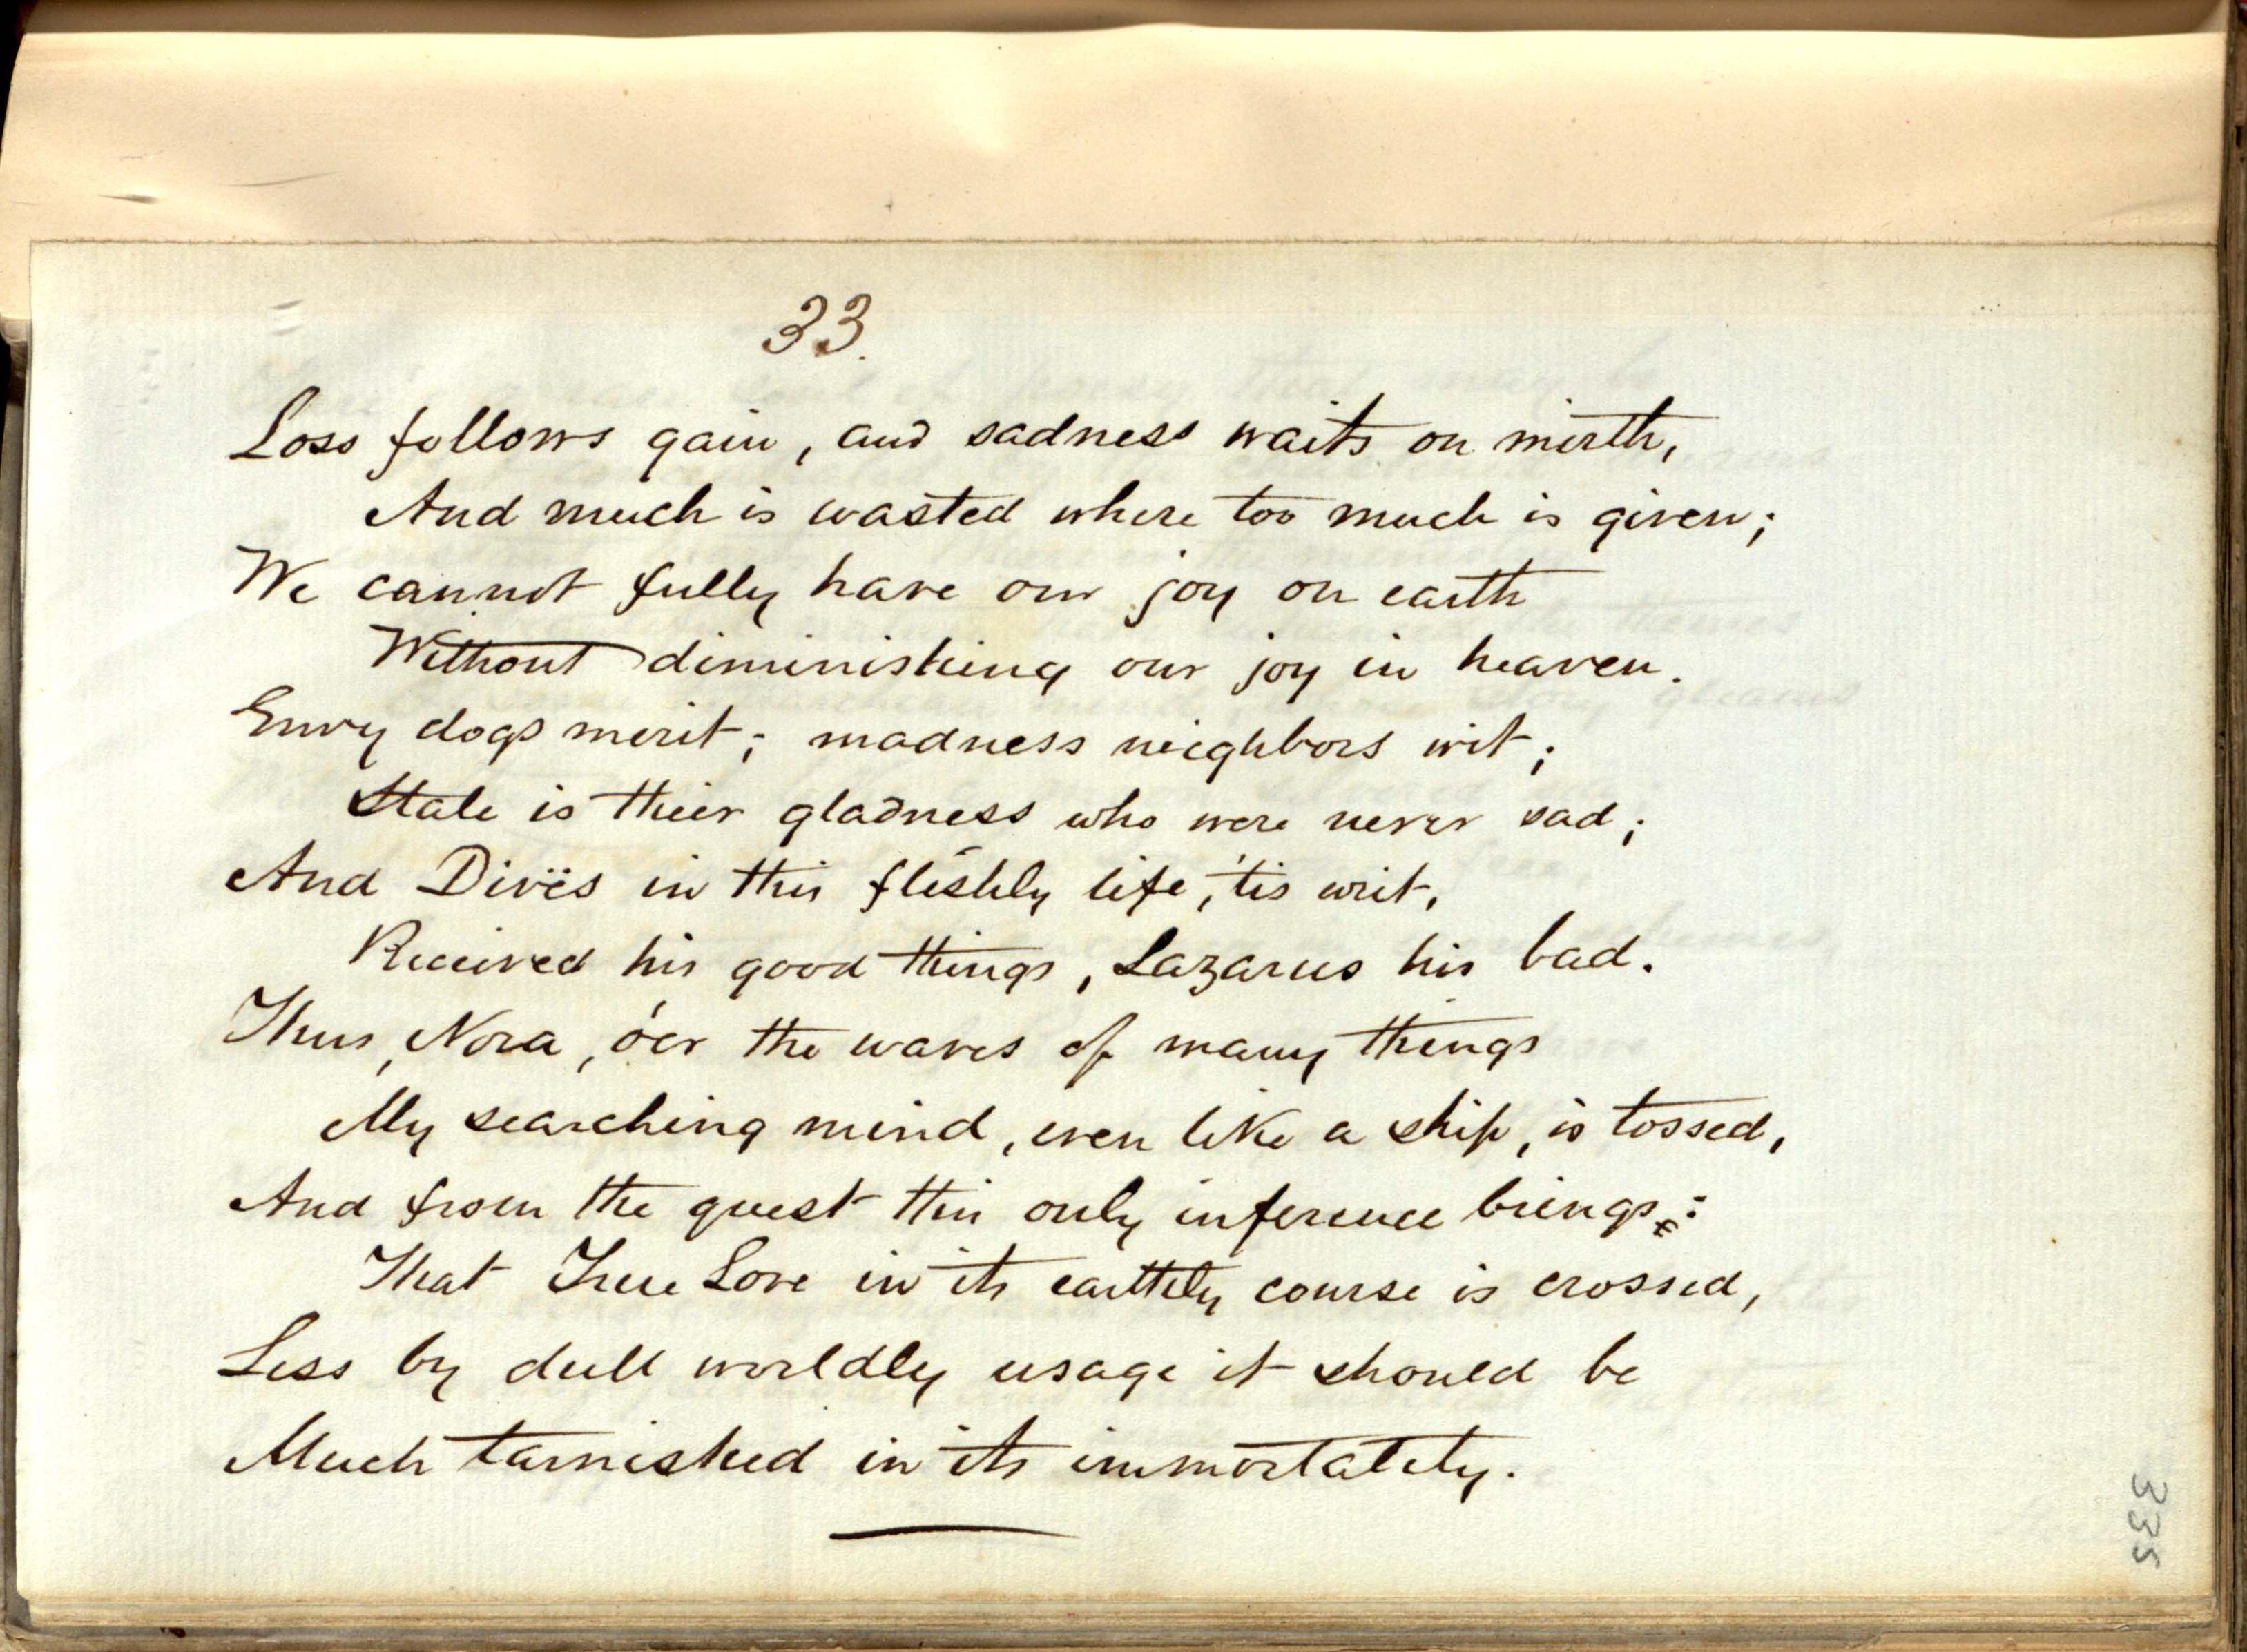 33.
Loss follows gain, and sadness waits on mirth,
And much is wasted where too much is given;
We cannot fully have our joy on earth
Without diminishing our joy in heaven.
Envy dogs merit; madness neighbors wit;
Stale is their gladness who were never sad;
And Divës in this fleshly life, 'tis writ,
Received his good things, Lazarus his bad.
Thus, Nora, o'er the waves of many things
My searching mind, even like a ship, is tossed,
And from the quest this only inference brings:
That True Love in its earthly course is crossed,
Less by dull worldly usage it should be
Much tarnished in its immortality.
335